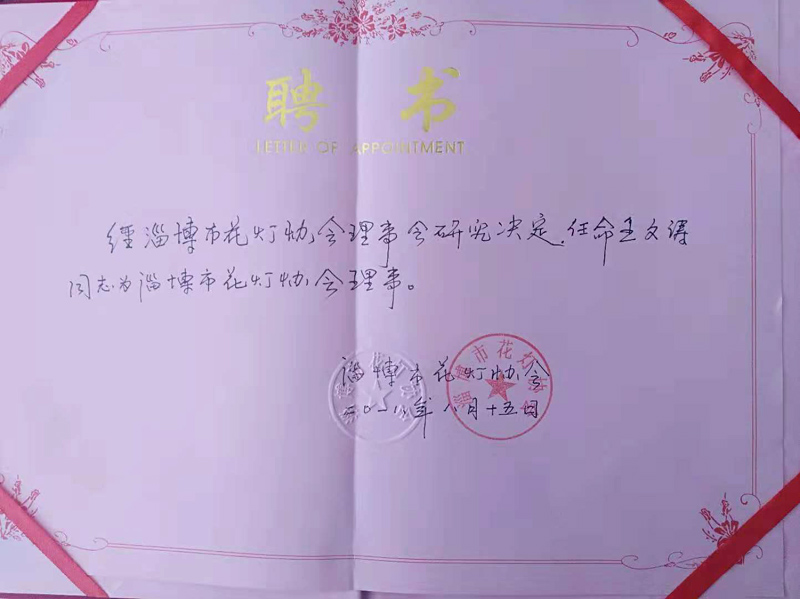 聘书
LETTER OF APPOINTMENT
经淄博市花灯协会理事会研究决定,任命王文涛
同志为淄博市花灯协会理事。
淄博市花灯协会
二〇一八年八月十五日
淄博市花灯协会